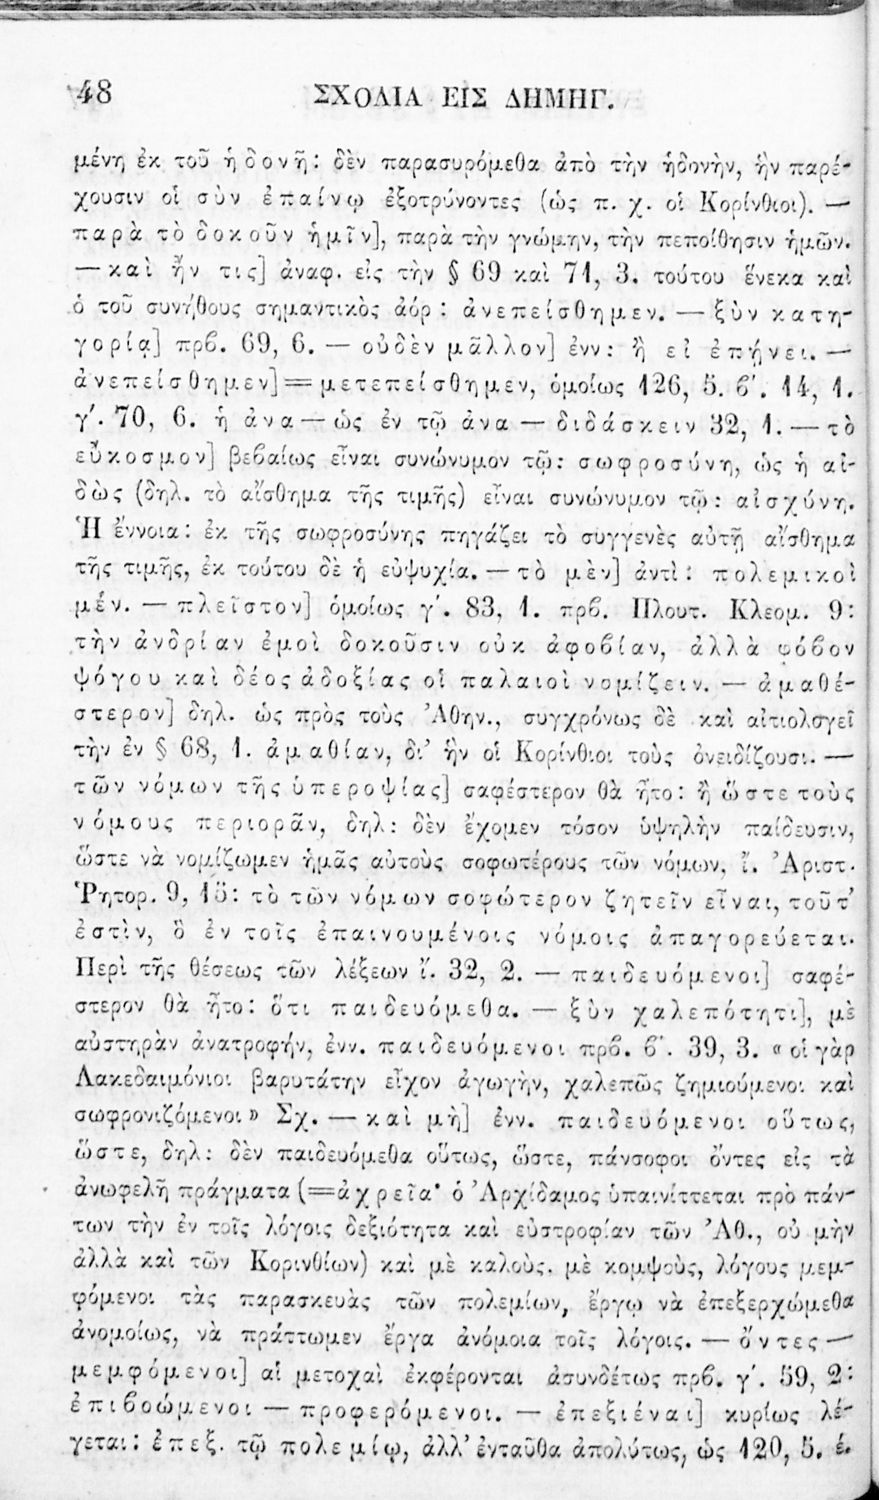 48 ΣΧΟΛΙΑ ΕΙΣ ΔΗΜΗΓ.
μένη ἐκ τοῦ ἡδονῇ: δὲν παρασυρόμεθα ἀπὸ τὴν ἡδονὴν, ἣν παρέ-
χουσιν οἱ σὺν ἐπαίνῳ ἐξοτρύνοντες (ὡς π. χ. οἱ Κορίνθιοι). —
παρὰ τὸ δοκοῦν ἡμῖν], παρὰ τὴν γνώμην, τὴν πεποίθησιν ἡμῶν.
— καὶ ἤν τις] ἀναφ. εἰς τὴν § 69 καὶ 71, 3. τούτου ἕνεκα καὶ
ὁ τοῦ συνήθους σημαντικὸς ἀόρ: ἀνεπείσθημεν. — ξὺν κατη-
γορίᾳ] πρβ. 69, 6. — οὐδὲν μᾶλλον] ἐνν: ἢ εἰ ἐπῄνει. —
ἀνεπείσθημεν] = μετεπείσθημεν, ὁμοίως 126, 5. β΄. 14, 1.
γ΄. 70, 6. ἡ ἀνα — ὡς ἐν τῷ ἀνα — διδάσκειν 32, 1. — τὸ
εὔκοσμον] βεβαίως εἶναι συνώνυμον τῷ: σωφροσύνη, ὡς ἡ αἰ-
δὼς (δηλ. τὸ αἴσθημα τῆς τιμῆς) εἶναι συνώνυμον τῷ: αἰσχύνη.
Ἡ ἔννοια: ἐκ τῆς σωφροσύνης πηγάζει τὸ συγγενὲς αὐτῇ αἴσθημα
τῆς τιμῆς, ἐκ τούτου δὲ ἡ εὐψυχία. — τὸ μὲν] ἀντὶ: πολεμικοὶ
μέν. — πλεῖστον] ὁμοίως γ΄. 83, 1. πρβ. Πλουτ. Κλεομ. 9:
τὴν ἀνδρίαν ἐμοὶ δοκοῦσιν οὐκ ἀφοβίαν, ἀλλὰ φόβον
ψόγου καὶ δέος ἀδοξίας οἱ παλαιοὶ νομίζειν. — ἀμαθέ-
στερον] δηλ. ὡς πρὸς τοὺς Ἀθην., συγχρόνως δὲ καὶ αἰτιολογεῖ
τὴν ἐν § 68, 1. ἀμαθίαν, δι’ ἣν οἱ Κορίνθιοι τοὺς ὀνειδίζουσι. —
τῶν νόμων τῆς ὑπεροψίας] σαφέστερον θὰ ἦτο: ἢ ὥστε τοὺς
νόμους περιορᾶν, δηλ: δὲν ἔχομεν τόσον ὑψηλὴν παίδευσιν,
ὥστε νὰ νομίζωμεν ἡμᾶς αὐτοὺς σοφωτέρους τῶν νόμων, ἴ. Ἀριστ.
Ῥητορ. 9, 15: τὸ τῶν νόμων σοφώτερον ζητεῖν εἶναι, τοῦτ’
ἐστὶν, ὃ ἐν τοῖς ἐπαινουμένοις νόμοις ἀπαγορεύεται.
Περὶ τῆς θέσεως τῶν λέξεων ἴ. 32, 2. — παιδευόμενοι] σαφέ-
στερον θὰ ἦτο: ὅτι παιδευόμεθα. — ξὺν χαλεπότητι], μὲ
αὐστηρὰν ἀνατροφήν, ἐνν. παιδευόμενοι πρβ. β΄. 39, 3. «οἱ γὰρ
Λακεδαιμόνιοι βαρυτάτην εἶχον ἀγωγὴν, χαλεπῶς ζημιούμενοι καὶ
σωφρονιζόμενοι» Σχ. — καὶ μὴ] ἐνν. παιδευόμενοι οὕτως,
ὥστε, δηλ: δὲν παιδευόμεθα οὕτως, ὥστε, πάνσοφοι ὄντες εἰς τὰ
ἀνωφελῆ πράγματα (=ἀχρεῖα· ὁ Ἀρχίδαμος ὑπαινίττεται πρὸ πάν-
των τὴν ἐν τοῖς λόγοις δεξιότητα καὶ εὐστροφίαν τῶν Ἀθ., οὐ μὴν
ἀλλὰ καὶ τῶν Κορινθίων) καὶ μὲ καλοὺς, μὲ κομψοὺς, λόγους μεμ-
φόμενοι τὰς παρασκευὰς τῶν πολεμίων, ἔργῳ νὰ ἐπεξερχώμεθα
ἀνομοίως, νὰ πράττωμεν ἔργα ἀνόμοια τοῖς λόγοις. — ὄντες —
μεμφόμενοι] αἱ μετοχαὶ ἐκφέρονται ἀσυνδέτως πρβ. γ΄. 59, 2:
ἐπιβοώμενοι — προφερόμενοι. — ἐπεξιέναι] κυρίως λέ-
γεται: ἐπεξ. τῷ πολεμίῳ, ἀλλ’ ἐνταῦθα ἀπολύτως, ὡς 120, 5. ἐ.